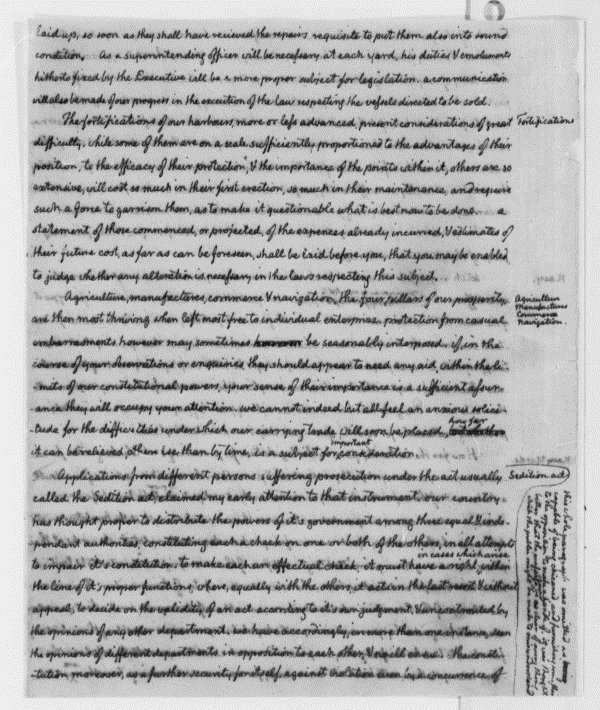 laid up, so soon as they shall have recieved the repairs requisite to put them also into sound
condition. As a superintending officer will be necessary at each yard, his duties & emoluments
hitherto fixed by the Executive will be a more proper subject for legislation. a communication
will also be made of our progress in the execution of the law respecting the vessels directed to be sold.
The fortifications of our harbours, more or less advanced, present considerations of great
Fortifications
difficulty. while some of them are on a scale sufficiently proportioned to the advantages of their
position, to the efficacy of their protection, & the importance of the points within it, others are so
extensive, will cost so much in their first erection, so much in their maintenance, and require
such a force to garrison them, as to make it questionable what is best now to be done. a
statement of those commenced, or projected, of the expences already incurred, & estimates of
their future cost, as far as can be foreseen, shall be laid before you, that you may be enabled
to judge whether any alteration is necessary in the laws respecting this subject.
Agriculture, manufactures, commerce & navigation, the four pillars of our prosperity,
Agriculture
Manufactures
Commerce
Navigation.
are then most thriving when left most free to individual enterprise. protection from casual
embarrasments however may sometimes be seasonably interposed. if in the
course of your observations or enquiries, they should appear to need any aid, within the li-
mits of our constitutional powers, your sense of their importance is a sufficient assur-
ance they will occupy your attention. we cannot indeed but all feel an anxious solici-
tude for the difficulties under which our carrying trade will soon be placed.
how far
it can be relieved, otherwise than by time, is a subject for important consideration.
Applications from different persons suffering prosecution under the act usually
Sedition act
called the Sedition act, claimed my early attention to that instrument. our country
has thought proper to distribute the powers of it's government among three equal & inde-
pendent authorities, constituting each a check on one or both of the others, in all attempts
to impair it's constitution. to make each an effectual check, it must have a right in cases which arise within
the line of it's proper functions, where, equally with the others, it acts in the last resort & without
appeal, to decide on the validity of an act according to it's own judgment, & uncontrouled by
the opinions of any other department. we have accordingly, in more than one instance, seen
the opinions of different departments in opposition to each other, & no ill ensue. the consti-
-tution moreover, as a further security for itself, against violation even by a concurrence of
this whole paragraph was omitted as